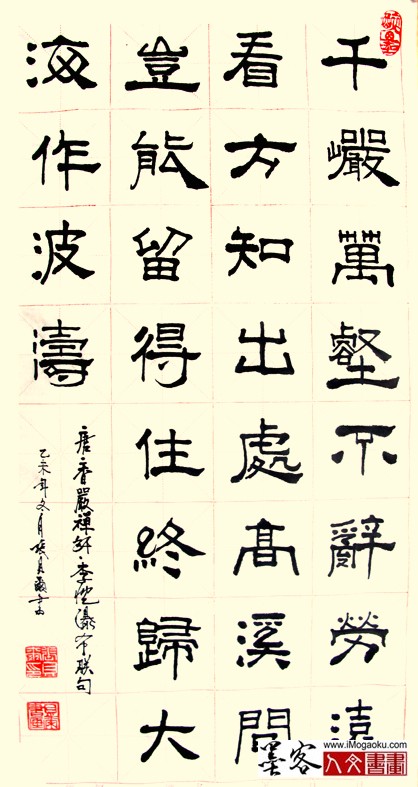 千巗萬壑不辭勞遠
看方知出處高溪間
豈能留得住終歸大
海作波濤
唐·香嚴禪師·李忱瀑布联句
乙未年冬月
墨客
www.iMogaoku.com
人文書畫